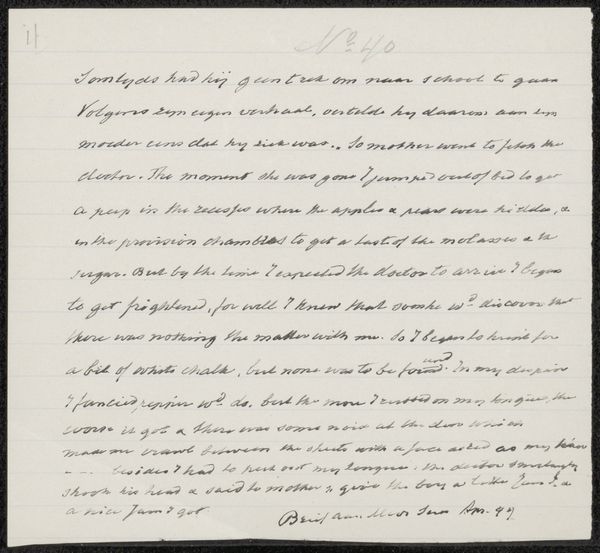 11
No 40
Somtyds had hij geen trek om naar school te gaan
Volgens zijn eigen verhaal, vertelde hy daarom aan zyn
moeder eens dat hy ziek was.. So mother went to fetch the
doctor. The moment she was gone I jumped out of bed to get
a peep in the recesses where the apples & pears were hidden, &
in the provision chambres to get a tast of the molasses & the
sugar. But by the time I expected the doctor to arrive I began
to get frightened, for well I knew that soon he wd discover that
there was nothing the matter with me. So I began to hunt for
a bit of white chalk, but none was to be found. In my despair
I fancied, wd do, but the more I rubbed on my tongue, the
worse it got & there was some noise at the door which
made me crawl between the sheets with a face as red as my
--- besides I had to put out my tongue. The doctor smilingly
shook his head & said to mother; give the boy a
a nice Jan I got
Brief aan Ms